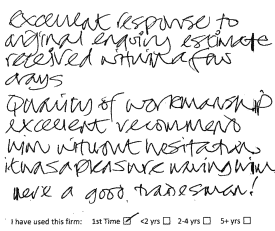 excellent response to
original enquiry estimate
received within a few
days
Quality of workmanship
excellent recommend
him without hesitation
it was a pleasure having him
here a good tradesman!
I have used this firm: 1st Time ☑ <2 yrs ☐ 2-4 yrs ☐ 5+ yrs ☐